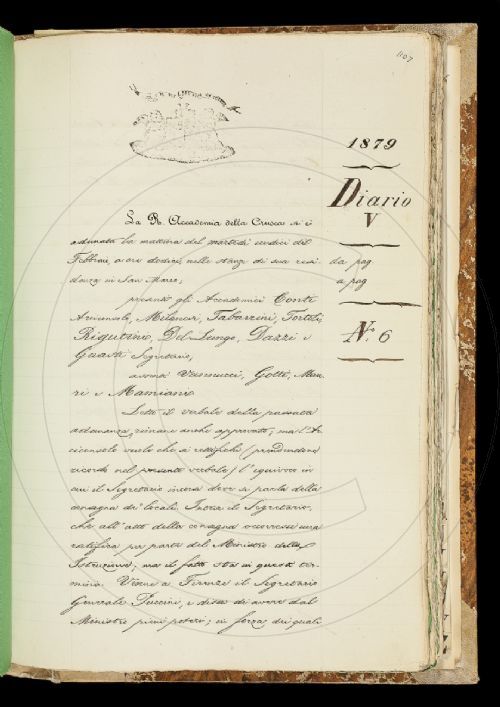 1107
1879
Diario
V
da pag
a pag
N.º 6
La R. Accademia della Crusca si è
adunata la mattina del martedì undici del
Febbraio, a ore dodici, nelle stanze di sua resi
denza in San Marco;
presenti gli Accademici Conti
Arciconsolo, Milanesi, Tabarrini, Tortoli,
Rigutini, Del Lungo, Dazzi e
Guasti Segretario;
assenti Vannucci, Gotti, Mau
ri e Mamiani.
Letto il verbale della passata
adunanza, rimane anche approvato; ma l'Ar
ciconsolo vuole che si rettifichi (prendendone
ricordo nel presente verbale) l'equivoco in
cui il Segretario incorse dove si parla della
consegna de' locali. Intese il Segretario,
che all'atto della consegna occorresse una
ratifica per parte del Ministro della
Istruzione; ma il fatto sta in questi ter
mini. Venne a Firenze il Segretario
Generale Puccini, e disse di avere dal
Ministro pieni poteri; in forza dei quali